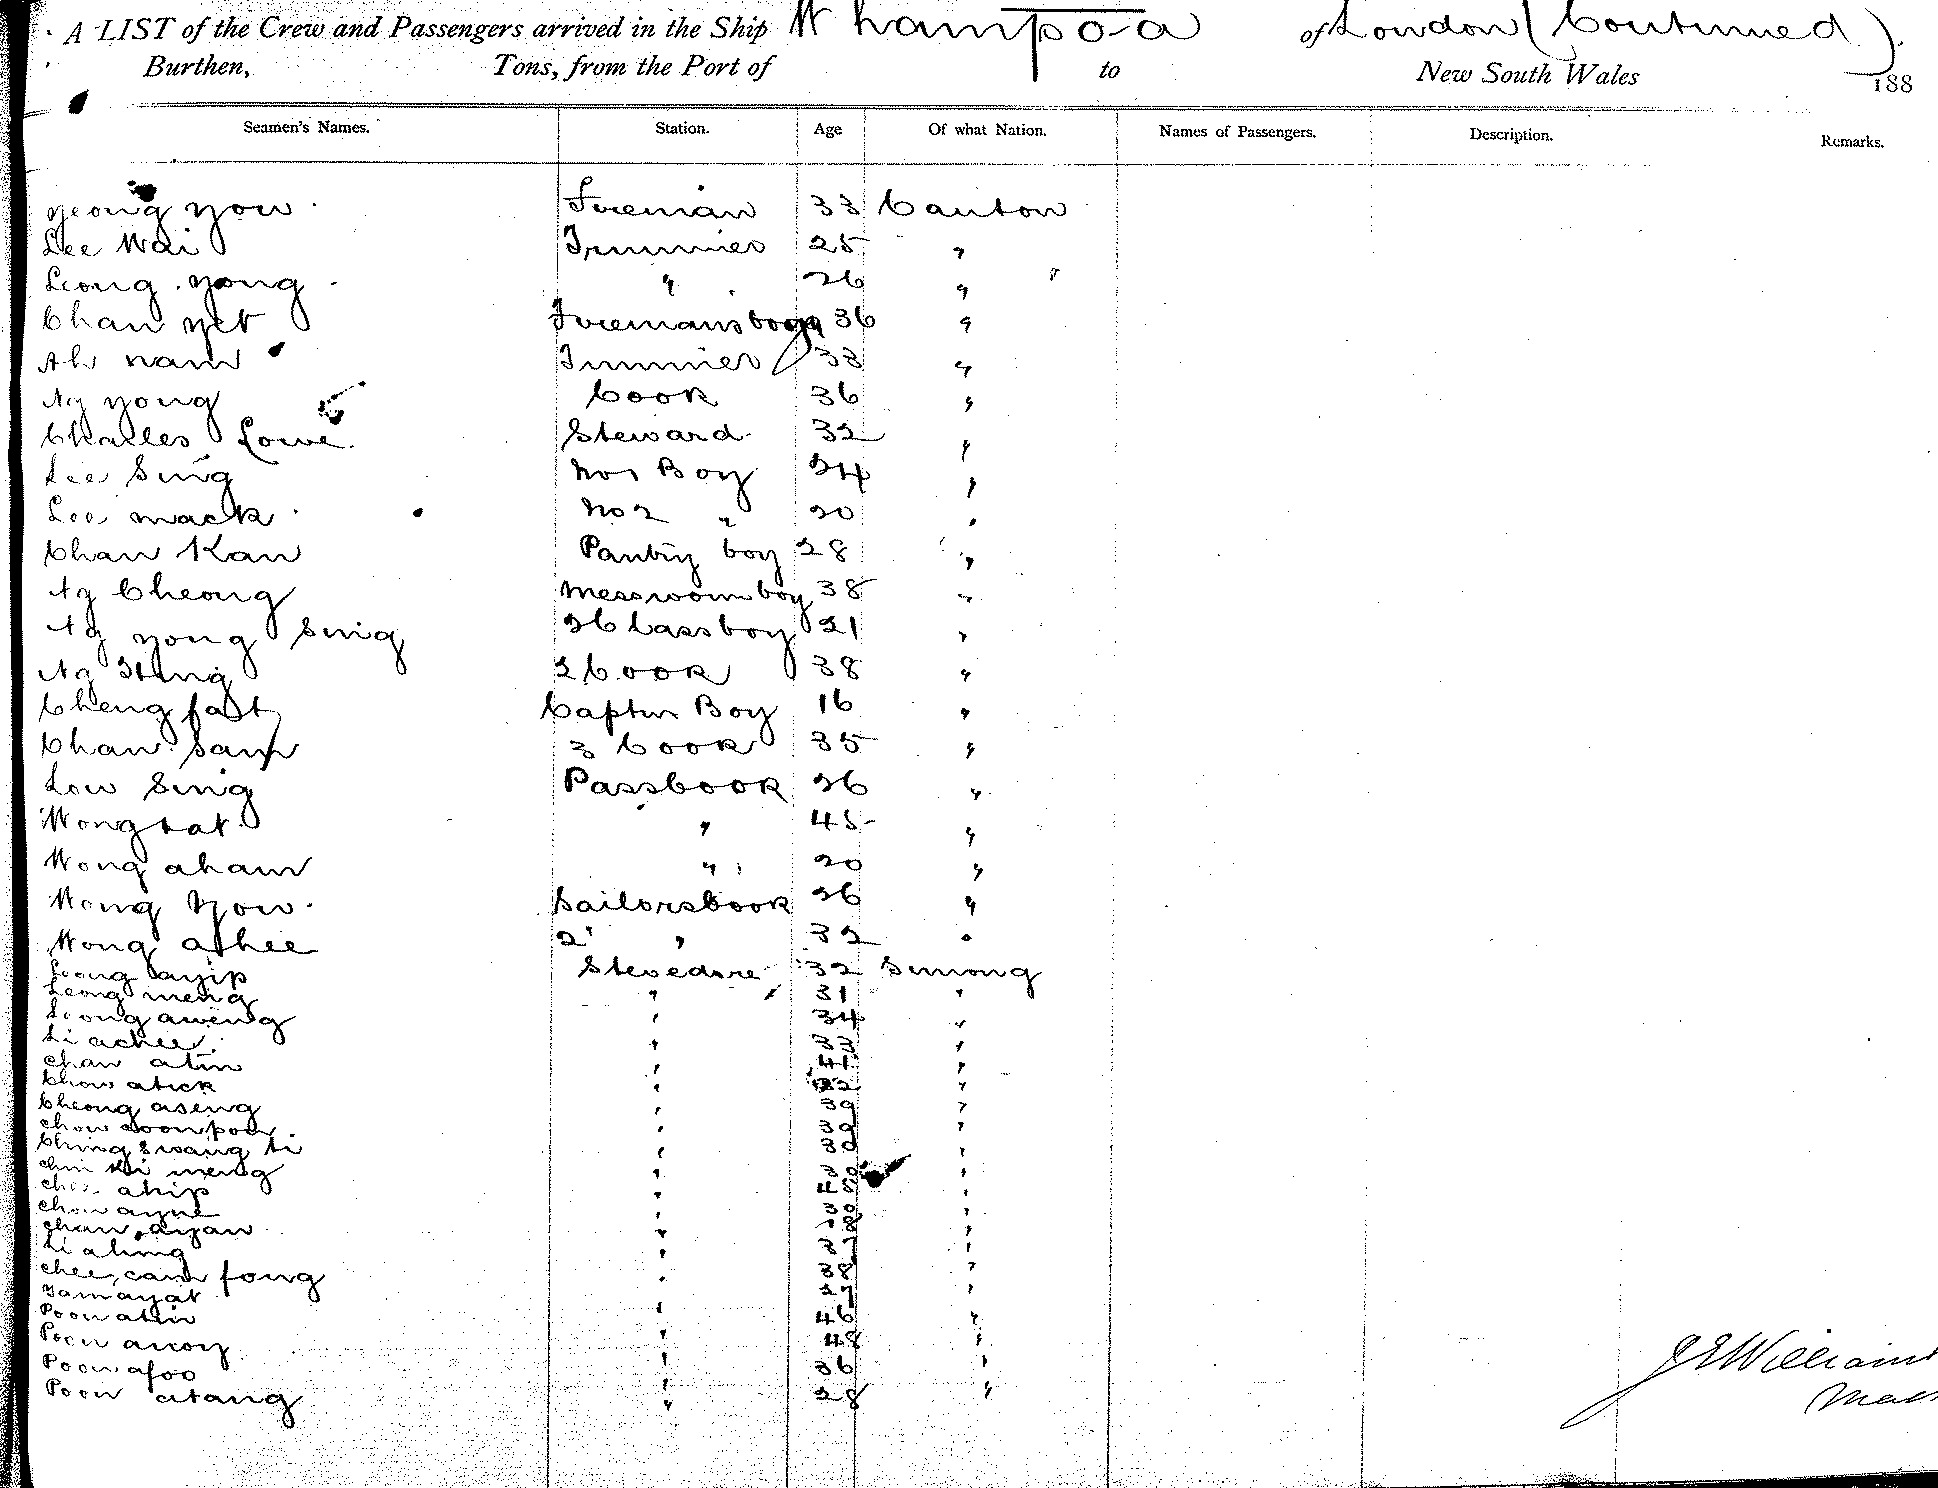 A LIST of the Crew and Passengers arrived in the Ship Whampoa of London (Continued)
Burthen, Tons, from the Port of to New South Wales 188
Seamen's Names. Station. Age Of what Nation. Names of Passengers. Description. Remarks.
yeong you Fireman 33 Canton
Lee Wai Trimmer 25 "
Leong yong " 26 "
Chan yet Firemans 36 "
Ah nam Trimmer 33 "
Ng yong Cook 36 "
Charles Lowe Steward 32 "
Lee Sing No 1 Boy 24 "
Lee mack No 2 " 20 "
Chan Kan Pantry boy 28 "
Ng Cheong Messroom boy 38 "
Ng yong Sing 2 Class boy 21 "
Ng 2 Cook 38 "
Cheng fat Captn Boy 16 "
Chan Sam 3 Cook 35 "
Low Sing Pass Cook 26 "
Wong tat " 45 "
Wong aham " 20 "
Wong You Sailors Cook 26 "
Wong achee 2 " 32 "
Leong ayip Stevedore 32
Leong meng " 31 "
Leong aweng " 34 "
Li achee " "
chan atin " "
Chow atick " "
Cheong aseng " 39 "
chow " 39 "
" 30 "
meng " "
ahip " "
" "
chan ayan " "
Li ahing " "
chee cam fong " 38 "
" "
Poon atin " 46 "
Poon " 48 "
Poon afoo " 36 "
Poon atang " 28 "
J E Williams